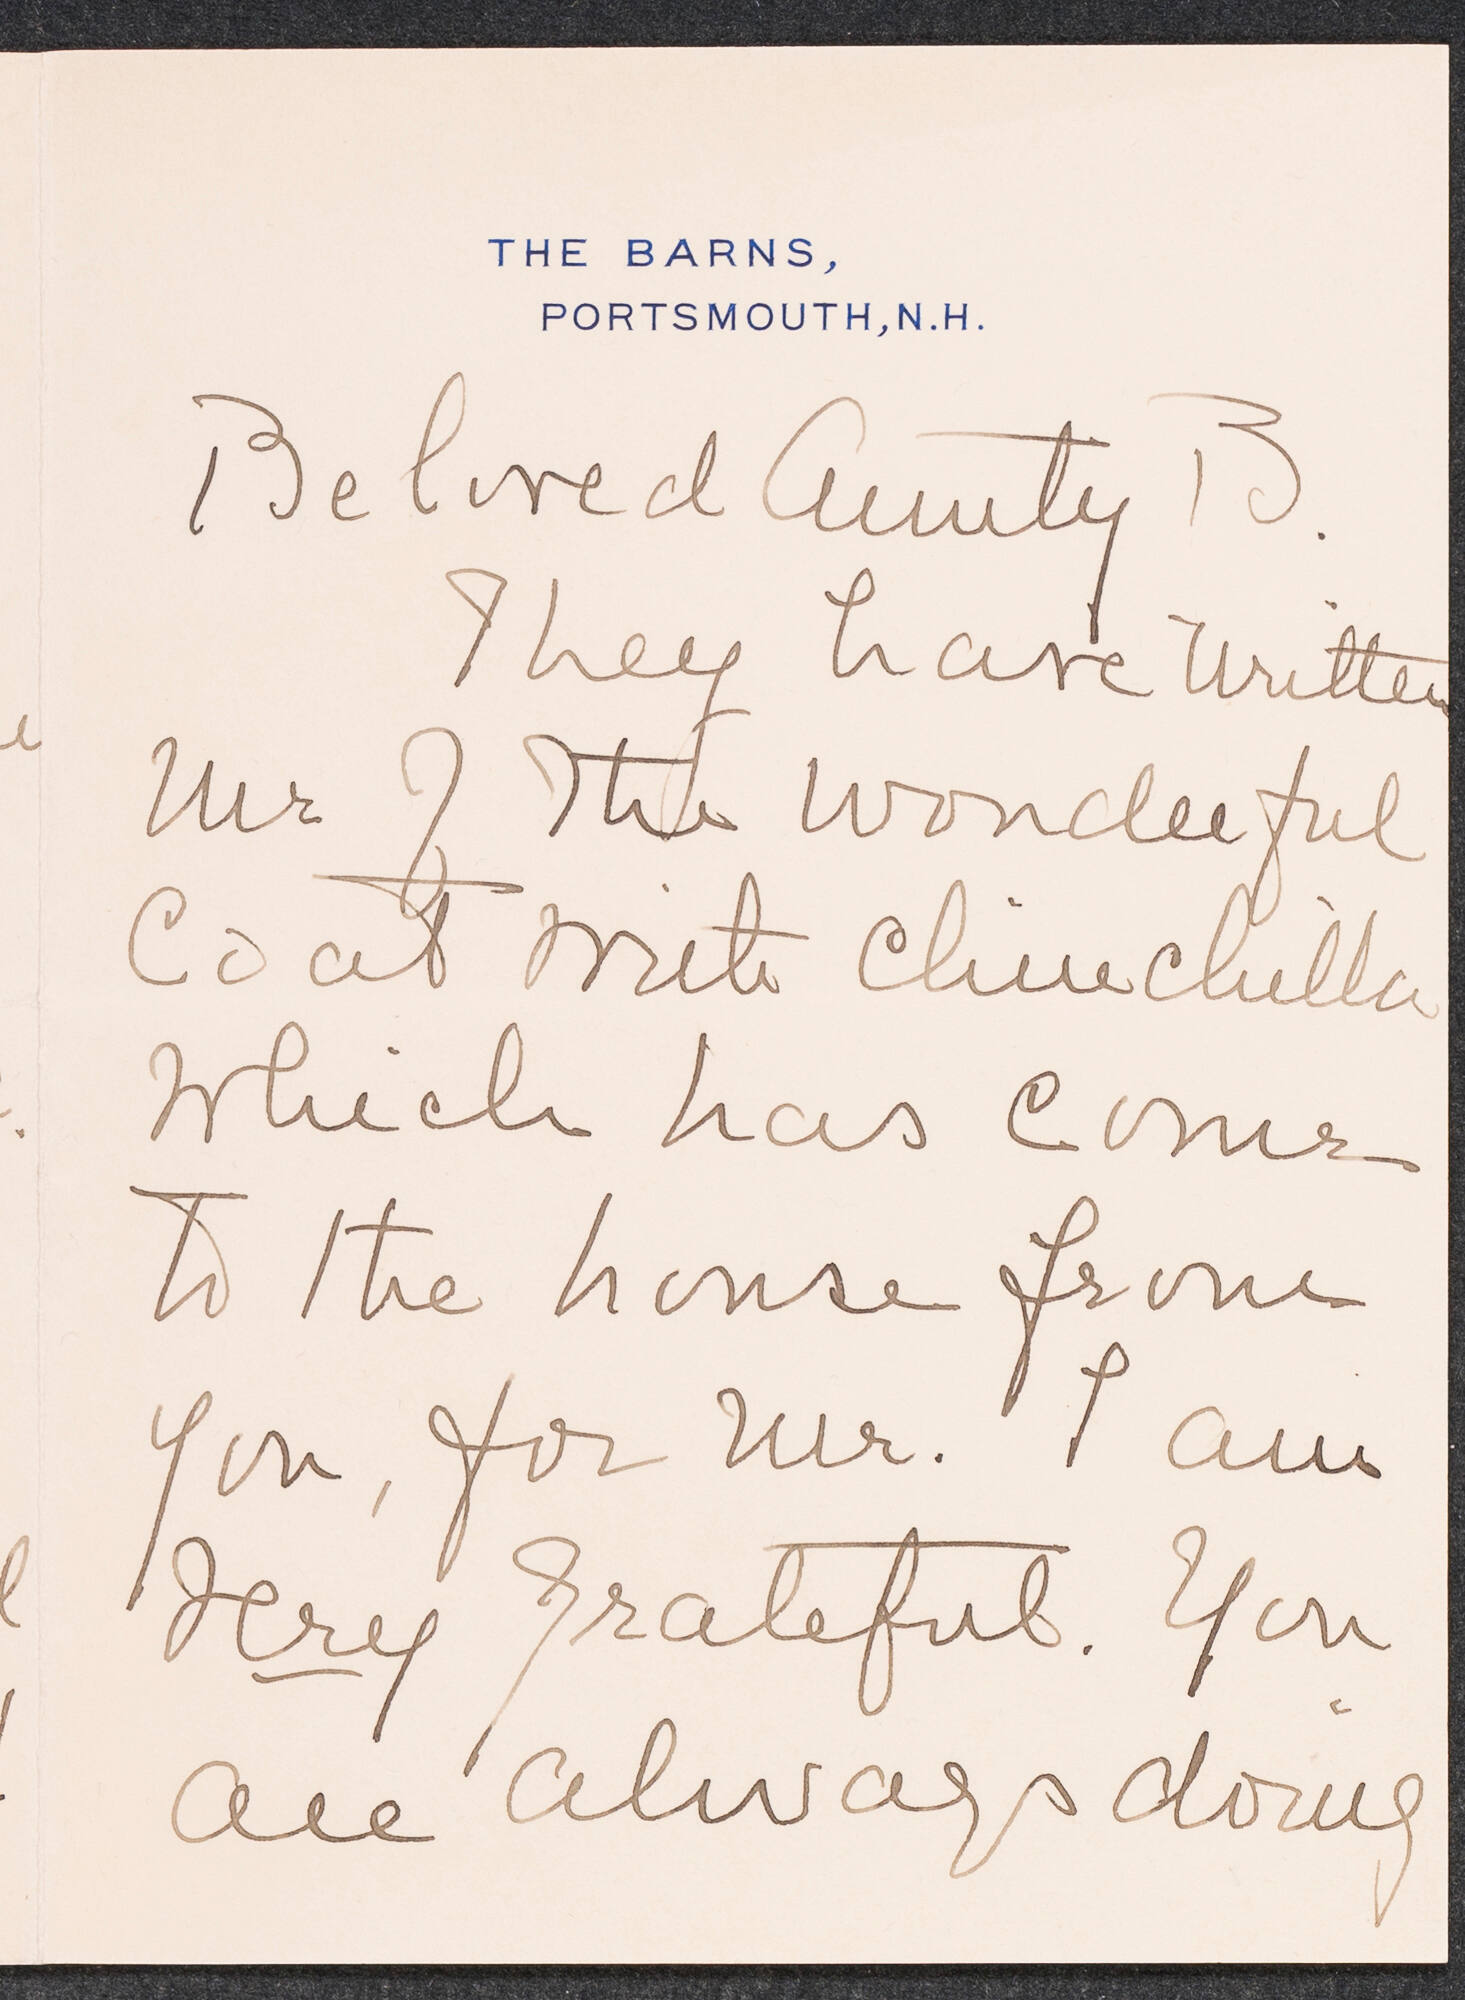 THE BARNS,
PORTSMOUTH, N.H.
Beloved Aunty B.
They have written
me of the wonderful
coat with chinchilla
which has come
to the house from
you, for me. I am
very grateful. You
are always doing